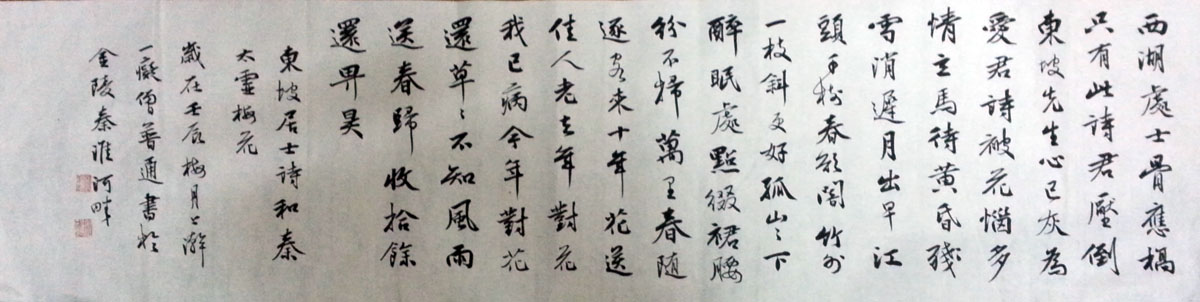 西湖處士骨應槁
只有此詩君壓倒
東坡先生心已灰為
愛君詩被花惱多
情立馬待黃昏殘
雪消遲月出早江
頭千樹春欲闇竹外
一枝斜更好孤山々下
醉眠處點綴裙腰
紛不掃萬里春隨
逐客來十年花送
佳人老去年對花
我已病今年對花
還草々不知風雨
送春歸收拾餘
還畀昊
東坡居士詩和秦
太虛梅花
歲在壬辰梅月上澣
一癡僧普通書於
金陵秦淮河畔